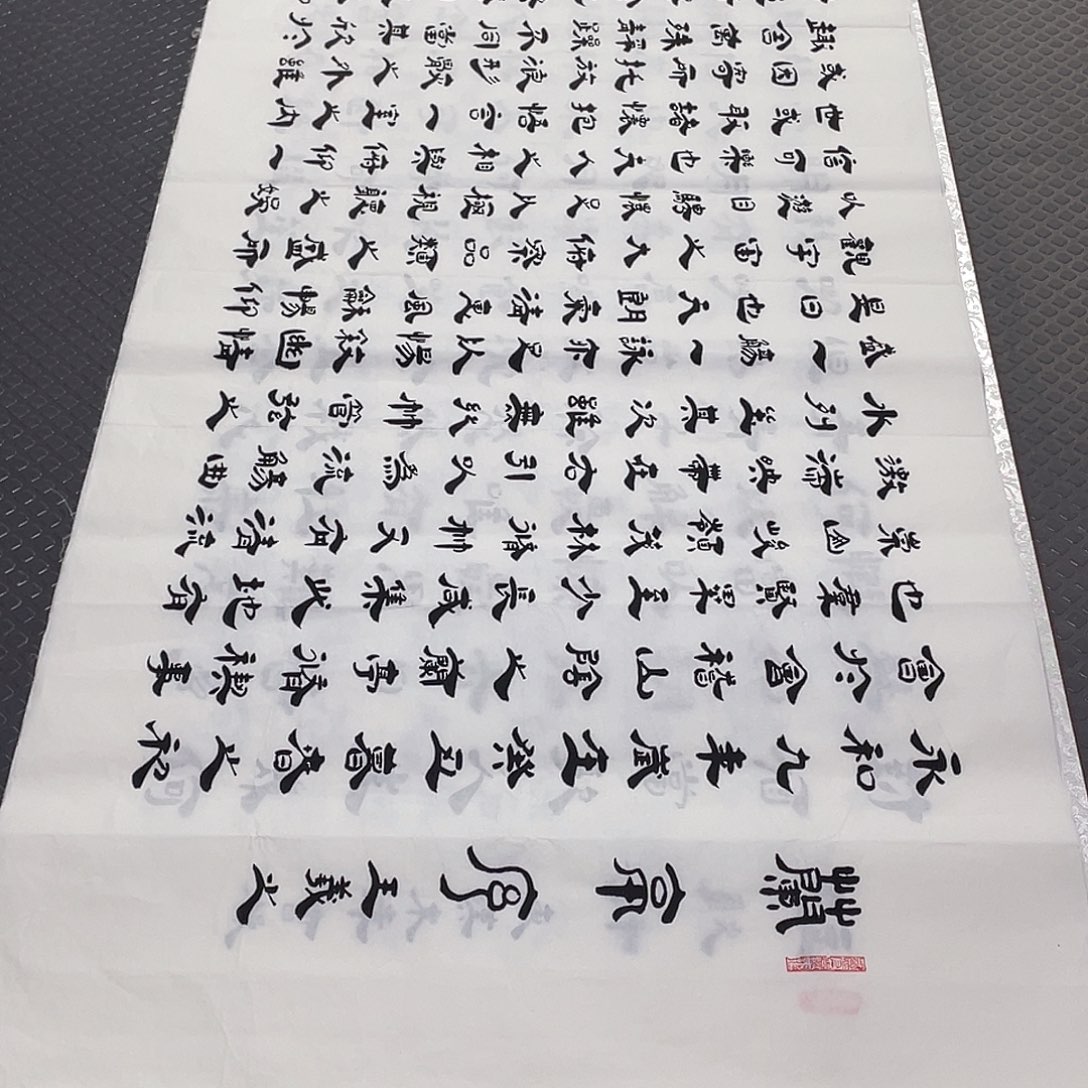 蘭亭序 王羲之
永和九年歲在癸丑暮春之初
會於會稽山陰之蘭亭脩禊事
也羣賢畢至少長咸集此地有
崇山峻嶺茂林脩竹又有清流
激湍映帶左右引以為流觴曲
水列坐其次雖無絲竹管弦之
盛一觴一詠亦足以暢敘幽情
是日也天朗氣清惠風和暢仰
觀宇宙之大俯察品類之盛所
以遊目騁懷足以極視聽之娛
信可樂也夫人之相與俯仰一
世或取諸懷抱悟言一室之內
或因寄所托放浪形骸之外雖
趣舍萬殊靜躁不同當其欣於